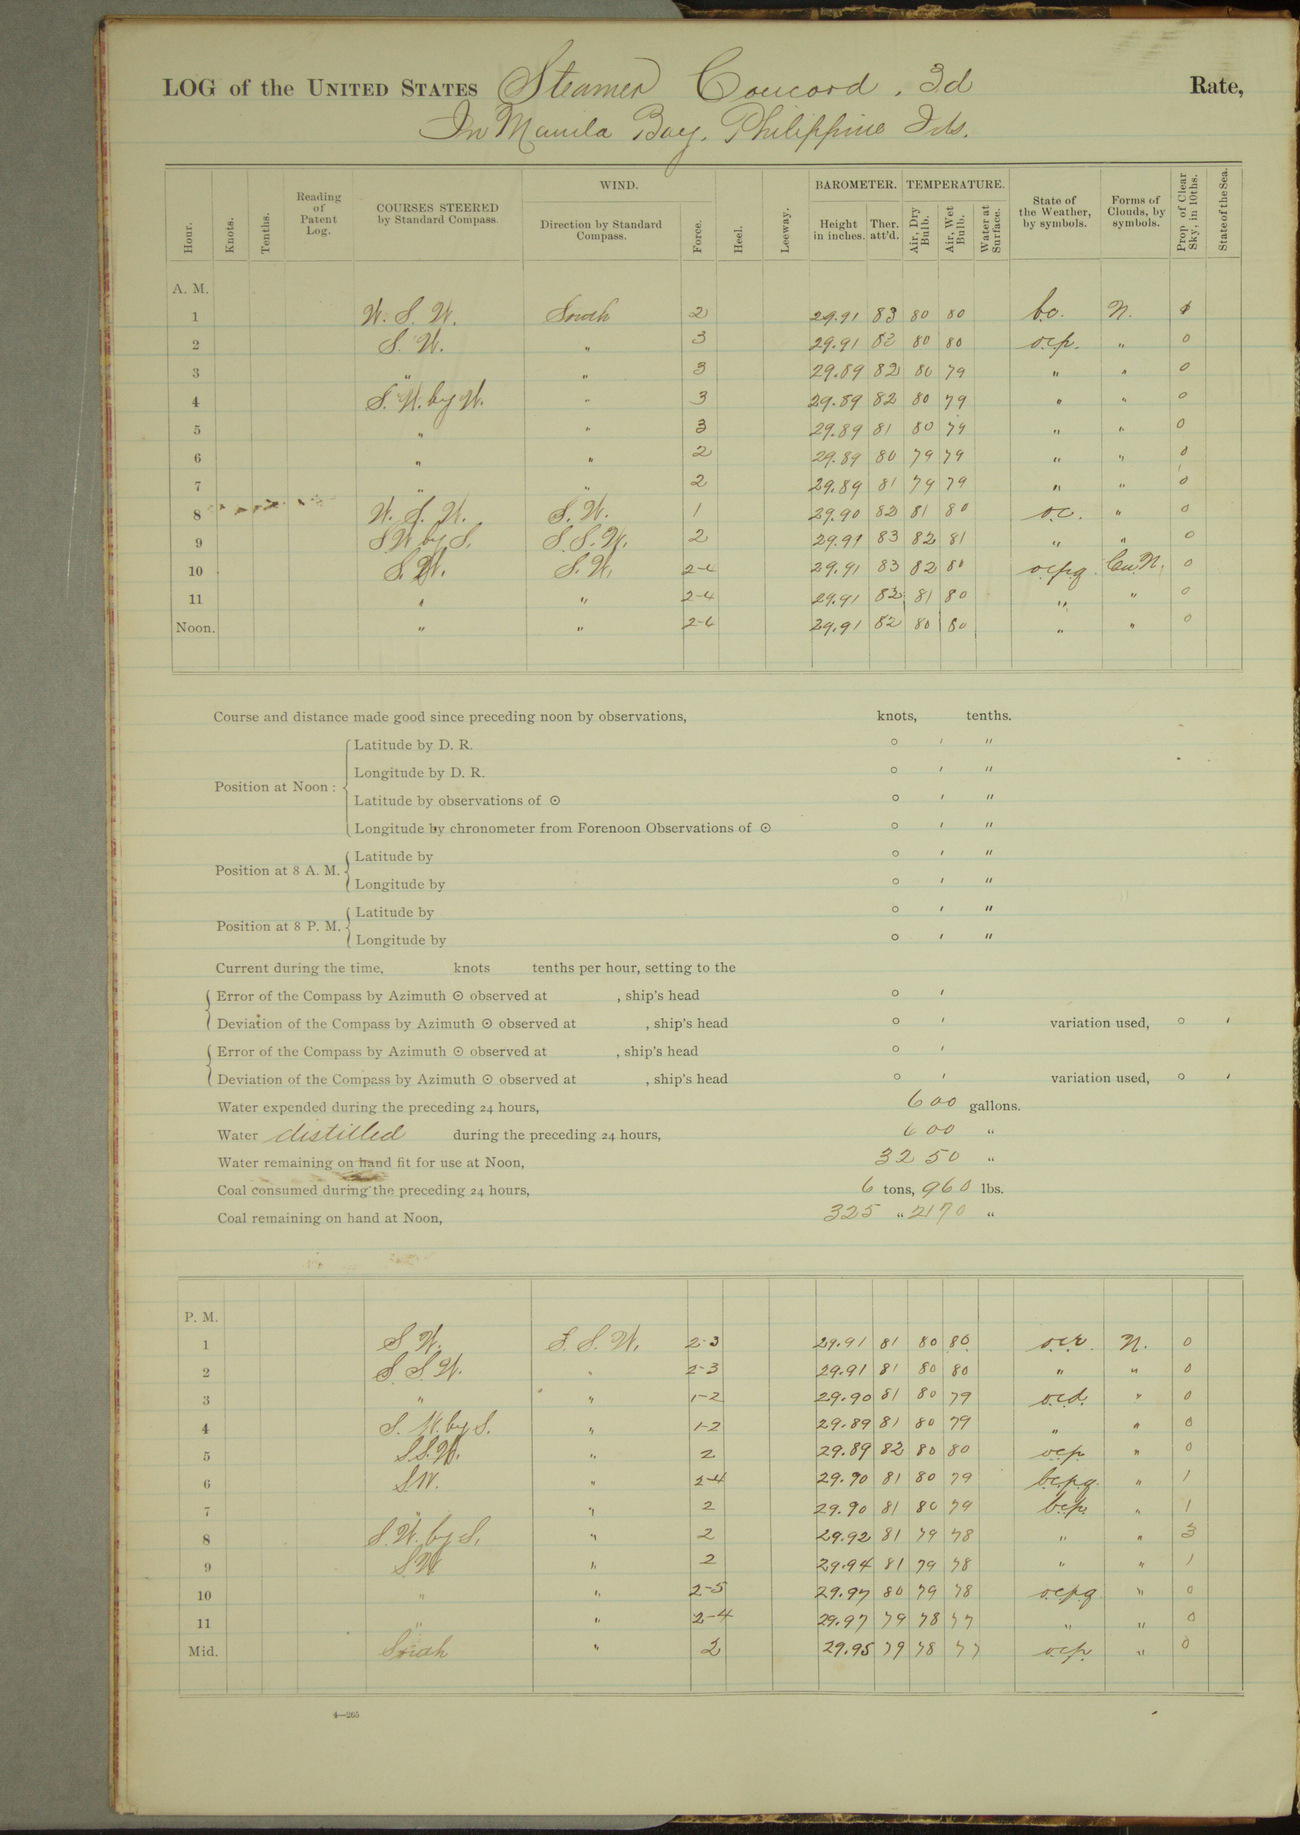 LOG of the UNITED STATES Steamer Concord, 3d Rate,
In Manila Bay, Philippine Ids.
Hour. Knots. Tenths. Reading of Patent Log. COURSES STEERED by Standard Compass. WIND. Direction by Standard Compass. Force. Heel. Leeway. BAROMETER. Height in inches. Ther. att'd. TEMPERATURE. Air, Dry Bulb. Air, Wet Bulb. Water at Surface. State of the Weather, by symbols. Forms of Clouds, by symbols. Prop. of Clear Sky, in 10ths. State of the Sea.
A. M.
1 W. S. W. South 2 29.91 83 80 80 b.c. N.
2 S. W. " 3 29.91 82 80 80 o.c.p. " 0
3 " " 3 29.89 82 80 79 " " 0
4 S. W. by W. " 3 29.89 82 80 79 " " 0
5 " " 3 29.89 81 80 79 " " 0
6 " " 2 29.89 80 79 79 " " 0
7 " " 2 29.89 81 79 79 " " 0
8 W. S. W. S. W. 1 29.90 82 81 80 o.c. " 0
9 S.W. by S. S. S. W. 2 29.91 83 82 81 " " 0
10 S.W. S. W. 29.91 83 82 80 o.c.p.q. Cu. N. 0
11 " " 2-4 29.91 82 81 80 " " 0
Noon. " " 2-6 29.91 82 80 80 " " 0
Course and distance made good since preceding noon by observations, knots, tenths.
Position at Noon :
Latitude by D. R. ° ' "
Longitude by D. R. ° ' "
Latitude by observations of ☉ ° ' "
Longitude by chronometer from Forenoon Observations of ☉ ° ' "
Position at 8 A. M.
Latitude by ° ' "
Longitude by ° ' "
Position at 8 P. M.
Latitude by ° ' "
Longitude by ° ' "
Current during the time, knots tenths per hour, setting to the
Error of the Compass by Azimuth ☉ observed at , ship's head ° '
Deviation of the Compass by Azimuth ☉ observed at , ship's head ° ' variation used, ° '
Error of the Compass by Azimuth ☉ observed at , ship's head ° '
Deviation of the Compass by Azimuth ☉ observed at , ship's head ° ' variation used, ° '
Water expended during the preceding 24 hours, 600 gallons.
Water distilled during the preceding 24 hours, 600 "
Water remaining on hand fit for use at Noon, 3250 "
Coal consumed during the preceding 24 hours, 6 tons, 960 lbs.
Coal remaining on hand at Noon, 325 " 2170 "
P. M.
1 S. W. S. S. W. 2-3 29.91 81 80 80 o.c.r. N. 0
2 S. S. W. " 2-3 29.91 81 80 80 " " 0
3 " " 1-2 29.90 81 80 79 o.c.d. " 0
4 S. W. by S. " 1-2 29.89 81 80 79 " " 0
5 S.S.W. " 2 29.89 82 80 80 o.c.p. " 0
6 S.W. " 2-4 29.90 81 80 79 b.c.p.q. " 1
7 " " 2 29.90 81 80 79 b.c.p. " 1
8 S. W. by S. " 2 29.92 81 79 78 " " 3
9 S.W. " 2 29.94 81 79 78 " " 1
10 " " 2-5 29.97 80 79 78 o.c.p.q. " 0
11 " " 2-4 29.97 79 78 77 " " 0
Mid. South " 2 29.95 79 78 77 o.c.p. " 0
4—265